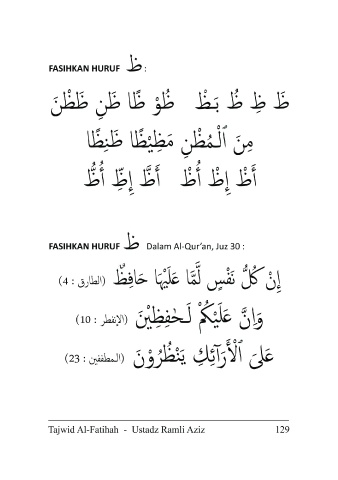 FASIHKAN HURUF ظ :
ظَ ظِ ظُ بَـظْ ظُوْ ظًا ظَنِ ظَظْنَ
مِنَ ٱلْـمُظْنِ مَظِيْظًا ظَنِظًا
أَظْ إِظْ أُظْ أَظَّ إِظِّ أُظُّ
FASIHKAN HURUF ظ Dalam Al-Qur'an, Juz 30 :
إِنْ كُلُّ نَفْسٍ لَّمَّا عَلَيْهَا حَافِظٌ (الطارق : 4)
وَاِنَّ عَلَيْكُمْ لَـحٰفِظِيْنَ (الإنفطر : 10)
عَلَى ٱلْأَرَآئِكِ يَنْظُرُوْنَ (المطففين : 23)
Tajwid Al-Fatihah - Ustadz Ramli Aziz 129